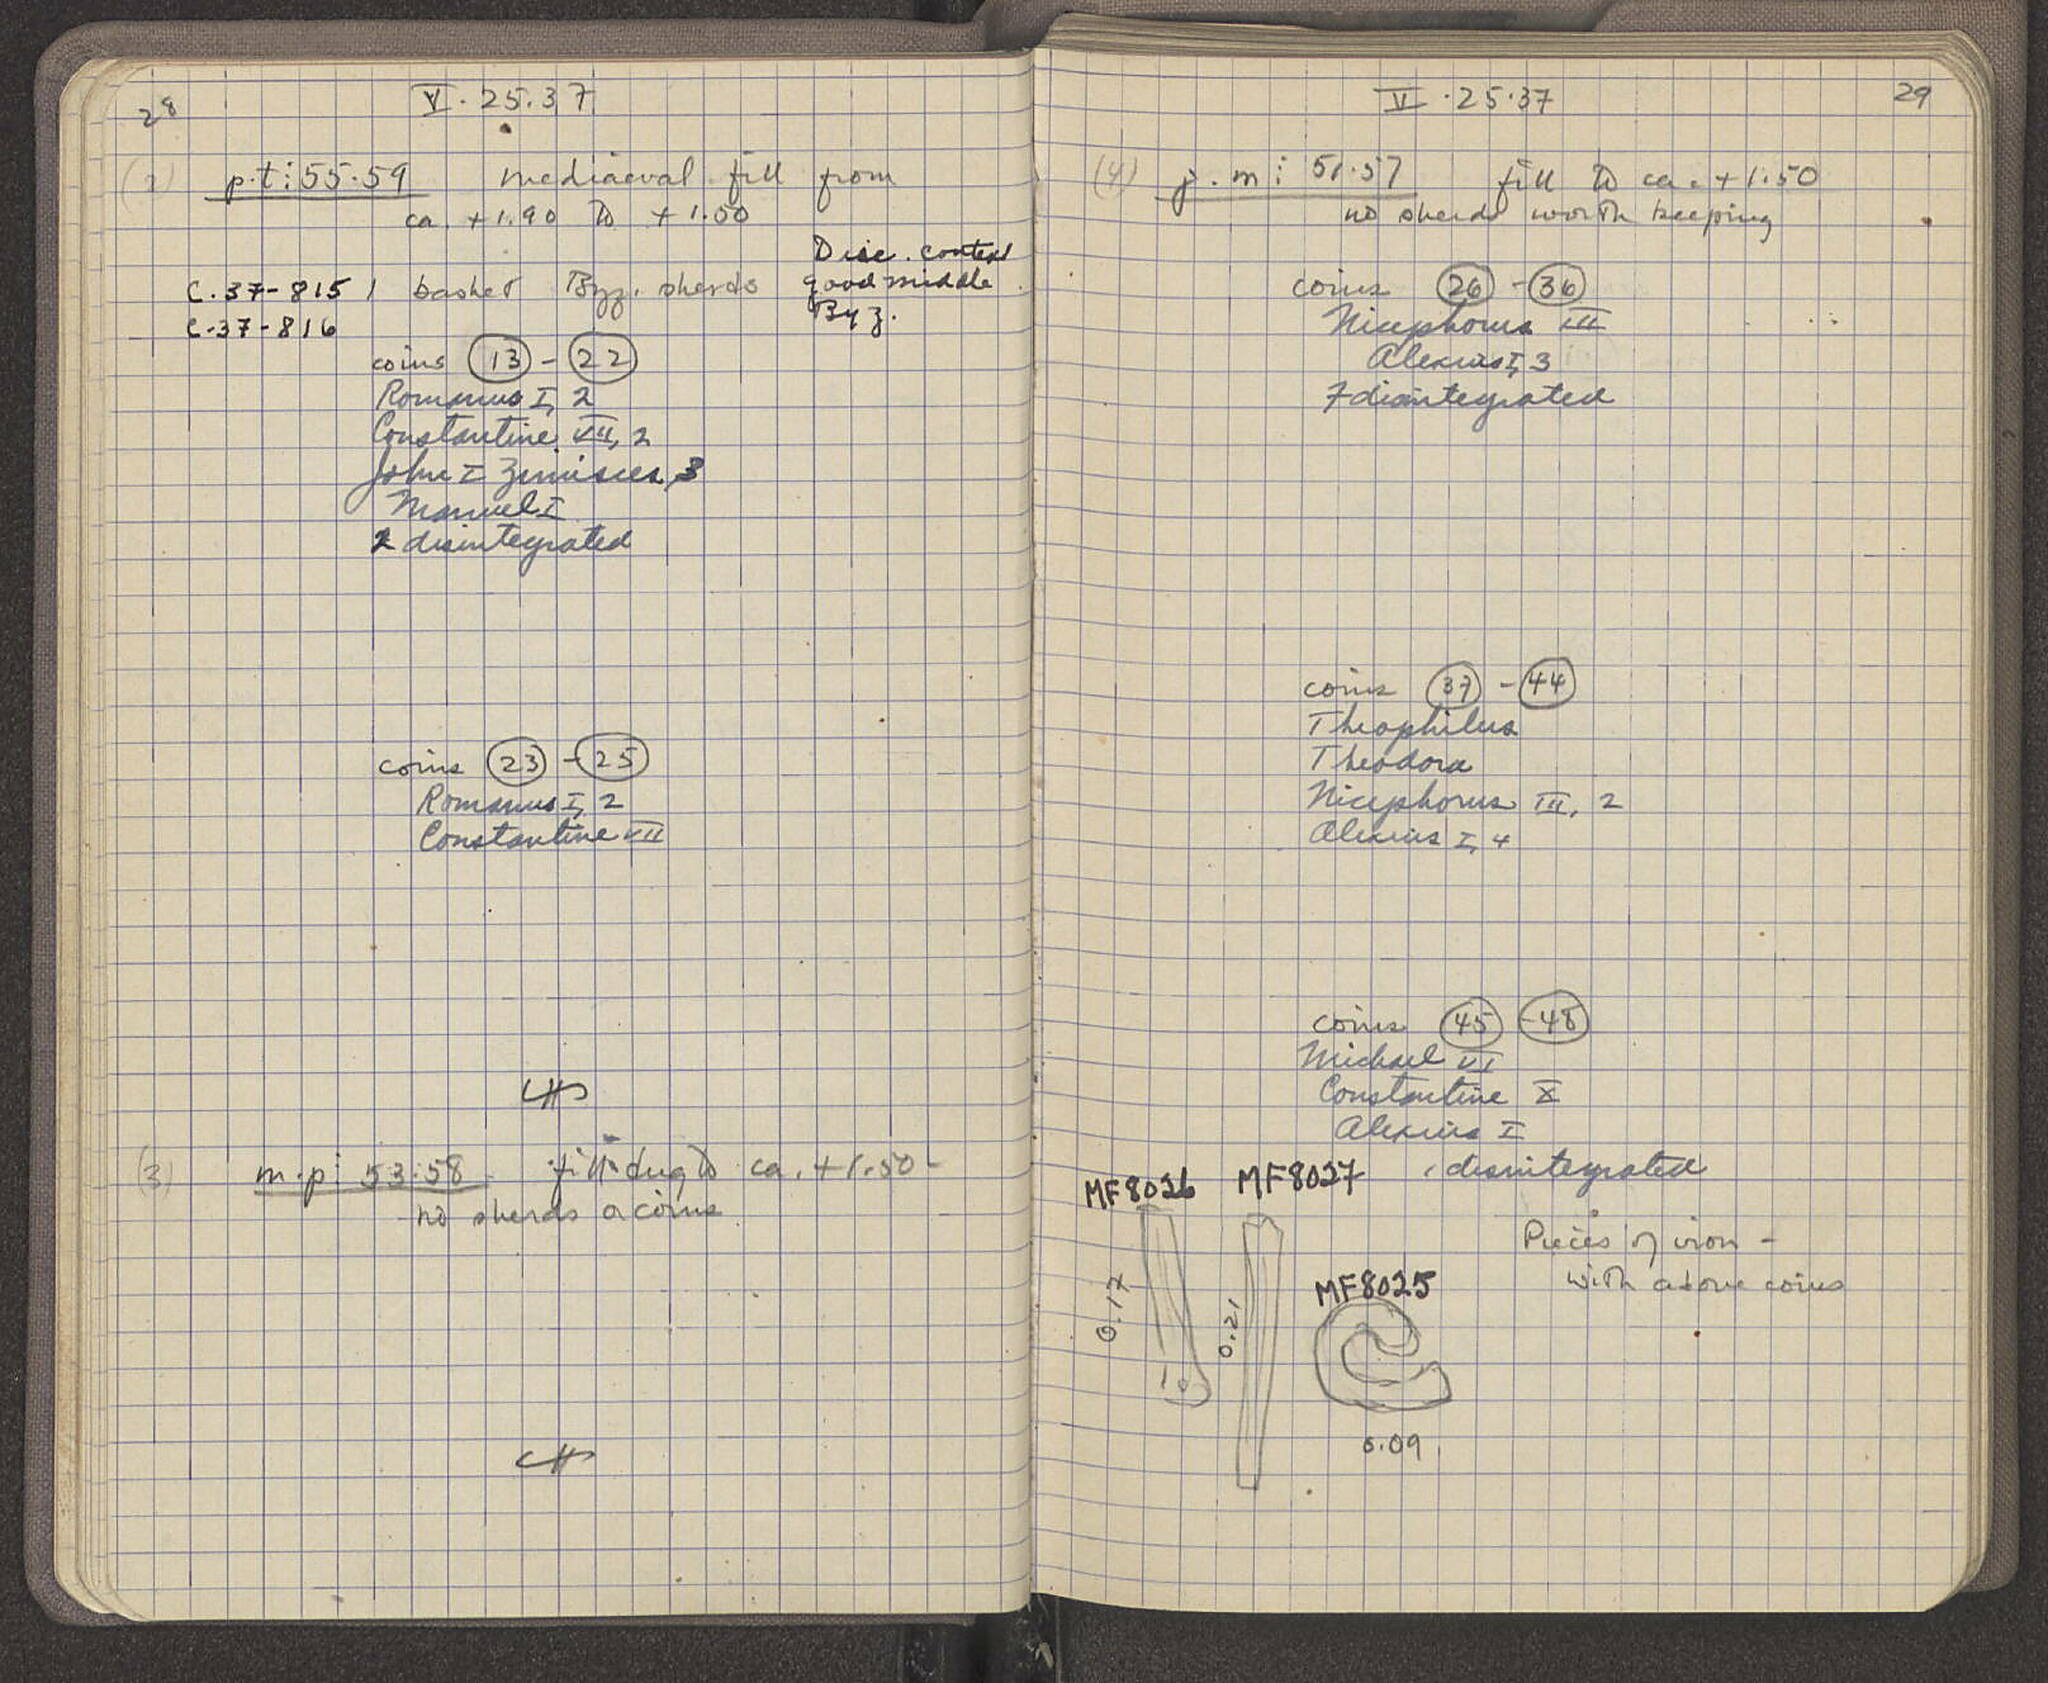 28
V.25.37
(2) p.t: 55.59 mediaeval fill from
ca. +1.90 to +1.50
Disc. context
good middle
Byz.
C.37-815 1 basket Byz. sherds
C-37-816
coins 13 - 22
Romanus I, 2
Constantine VII, 2
John I Zimisces, 3
Manuel I
2 disintegrated
coins 23 - 25
Romanus I, 2
Constantine VII
(3) m.p: 53.58 fill dug to ca. +1.50 -
no sherds or coins
V.25.37
29
(4) j.m: 51.57 fill to ca. +1.50
no sherds worth keeping
coins 26 - 36
Nicephorus III
Alexius I, 3
7 disintegrated
coins 37 - 44
Theophilus
Theodora
Nicephorus III, 2
Alexius I, 4
coins 45 - 48
Michael VI
Constantine X
Alexius I
1 disintegrated
MF8026 MF8027
Pieces of iron -
with above coins
MF8025
0.17
0.21
0.09